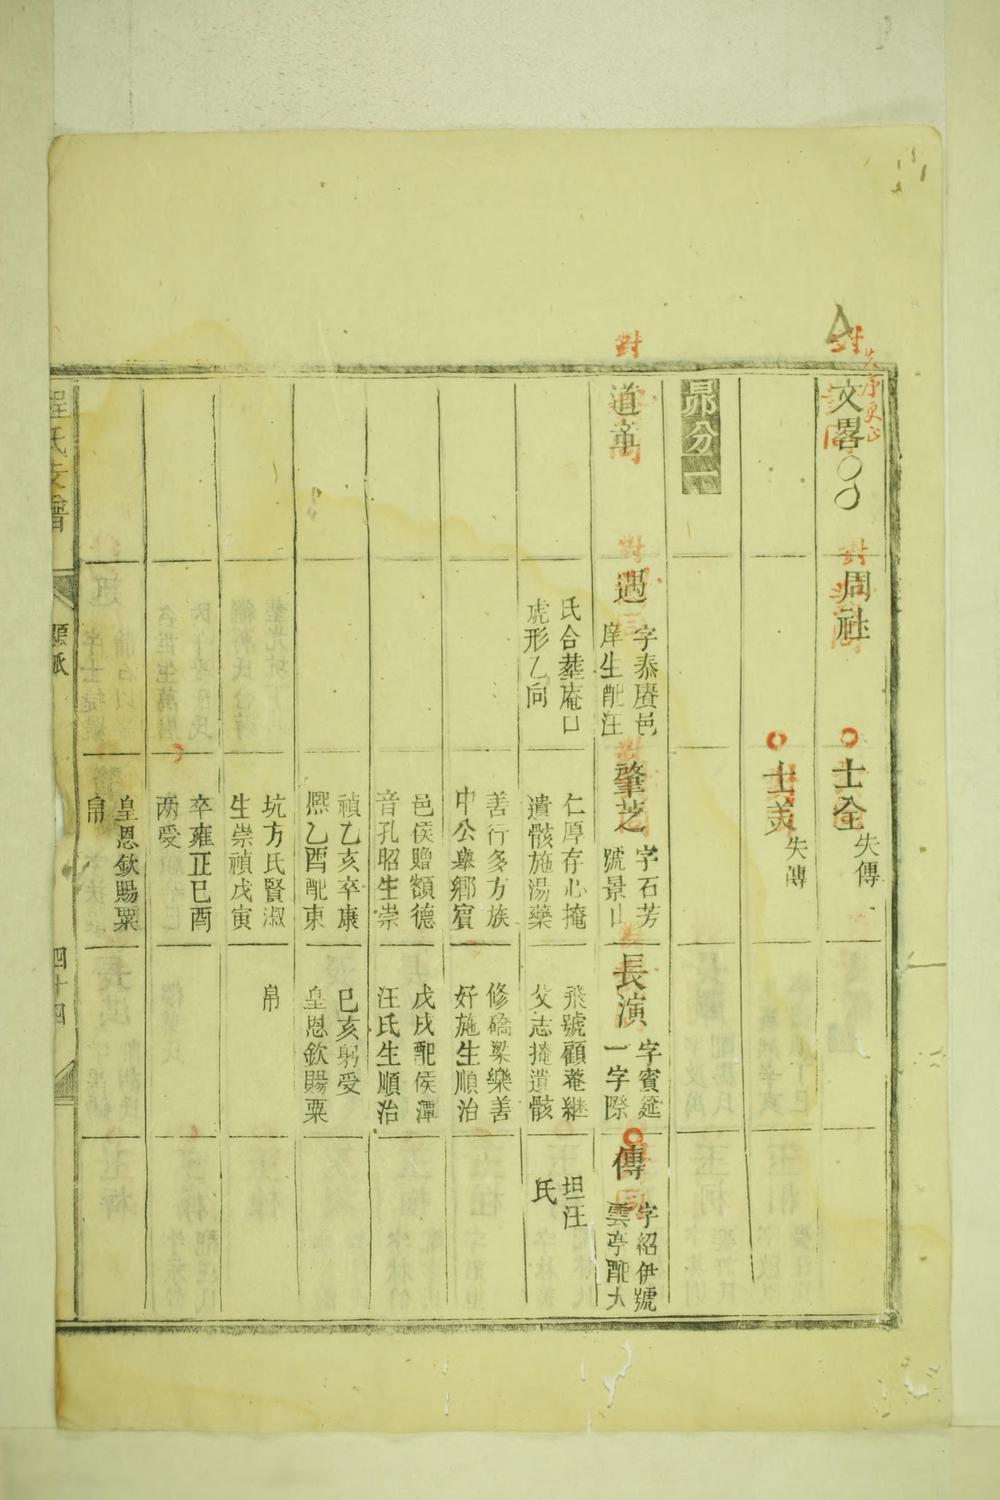 文畧
周社
士全
失傳
士美
失傳
昴分一
道童
遇
字泰賡邑
庠生配汪
氏合塟庵口
虎形乙向
肇芝
字石芳
號景山
仁厚存心掩
遺骸施湯藥
善行多方族
中公舉鄉賓
邑侯贈額德
音孔昭生崇
禎乙亥卒康
熈乙酉配東
坑方氏賢淑
生崇禎戊寅
卒雍正巳酉
两受
皇恩欽賜粟
帛
長演
字賓筵
一字際
飛號顧菴継
父志掩遺骸
修礄梁樂善
好施生順治
戊戌配侯潭
汪氏生順治
巳亥躬受
皇恩欽賜粟
帛
傳
字紹伊號
雲亭配大
坦汪
氏
程氏支譜
四十四